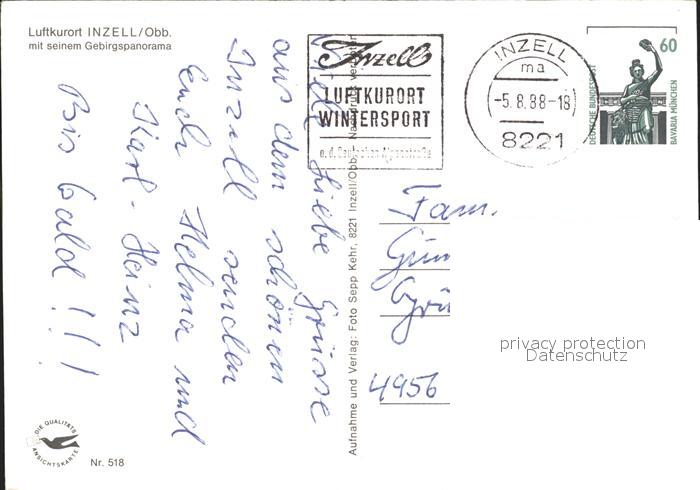 Luftkurort INZELL/Obb.
mit seinem Gebirgspanorama
Viele liebe Grüsse
aus dem schönen
Inzell senden
Euch Helma und
Karl-Heinz
Bis bald !!!
DIE QUALITÄTS
ANSICHTSKARTE
Nr. 518
Aufnahme und Verlag: Foto Sepp Kehr, 8221 Inzell/Obb. Nachdruck verboten
Inzell
LUFTKURORT
WINTERSPORT
a. d. Deutschen Alpenstraße
INZELL
ma
-5.8.88-18
8221
60
DEUTSCHE BUNDESPOST
BAVARIA MÜNCHEN
Fam.
4956
privacy protection
Datenschutz